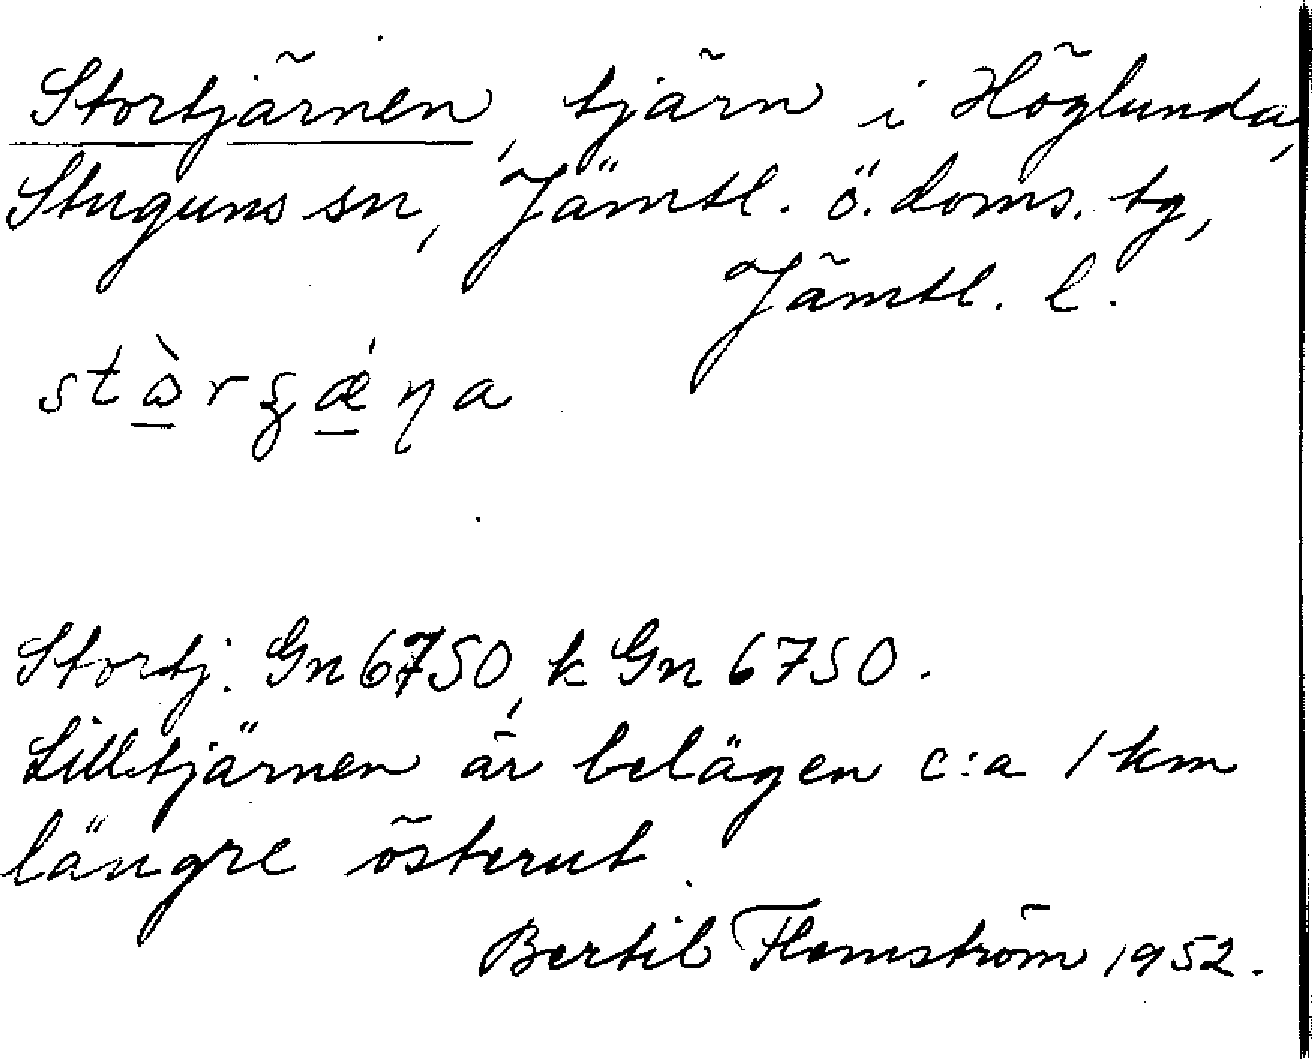 Stortjärnen, tjärn i Höglunda,
Stuguns sn, Jämtl. ö. doms. tg,
Jämtl. l.
Stortj. Gn 6750, k Gn 6750.
Lilltjärnen är belägen c:a 1 km
längre österut.
Bertil Flemström 1952.